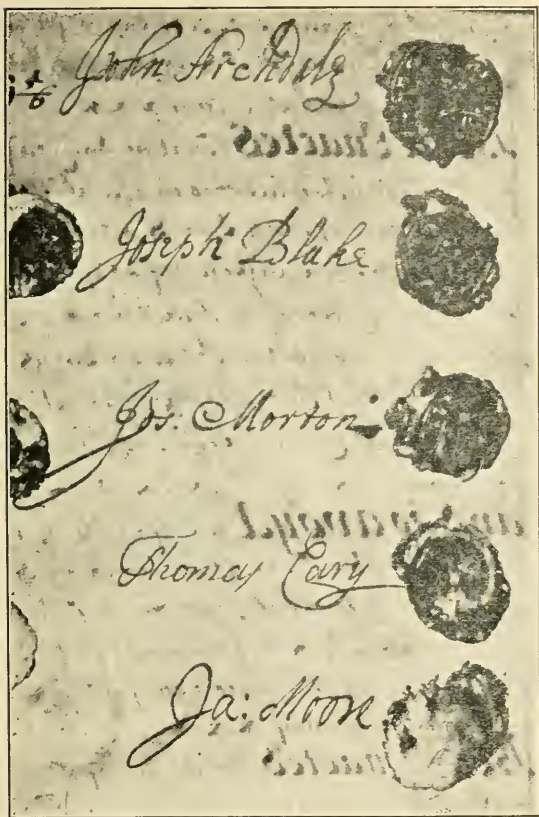 John Archdale
Joseph Blake
Jos. Morton
Thomas Cary
Ja: Moore